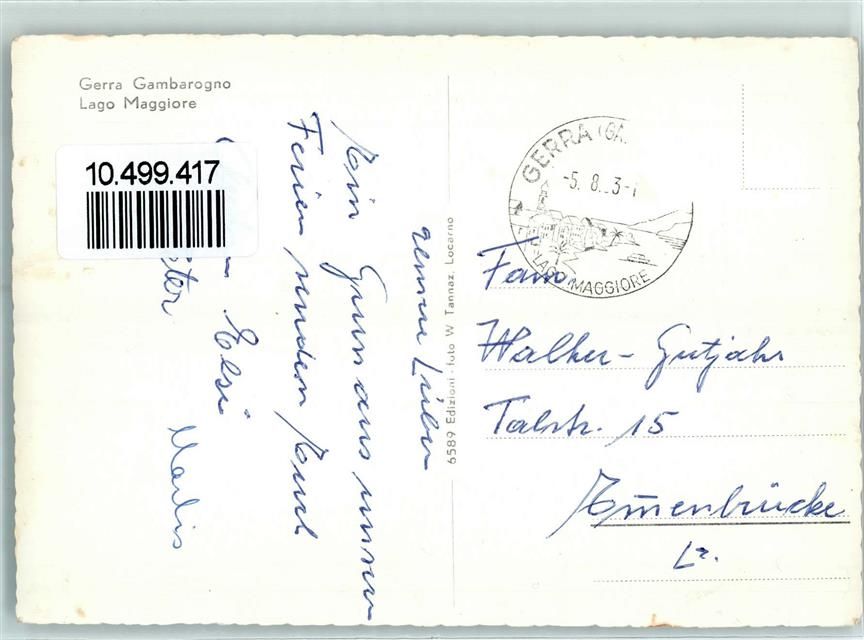 Gerra Gambarogno
Lago Maggiore
10.499.417
6589 Edizioni - foto W. Tannaz, Locarno
GERRA (GA
-5. 8. 3-1
LAGO MAGGIORE
Fam.
Walker - Gutjahr
Talstr. 15
Emmenbrücke
Lz.
Liebe
Ein Gruss aus unsern
Ferien senden Euch
Elsi
Marlis